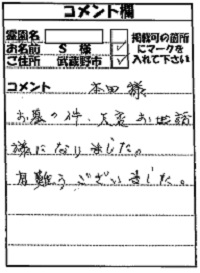 コメント欄
霊園名
お名前 S 様 ✓
ご住所 武蔵野市 ✓
掲載可の箇所
にマークを
入れて下さい
コメント 本田様
お墓の件、大変お世話
様になりました。
有難うございました。